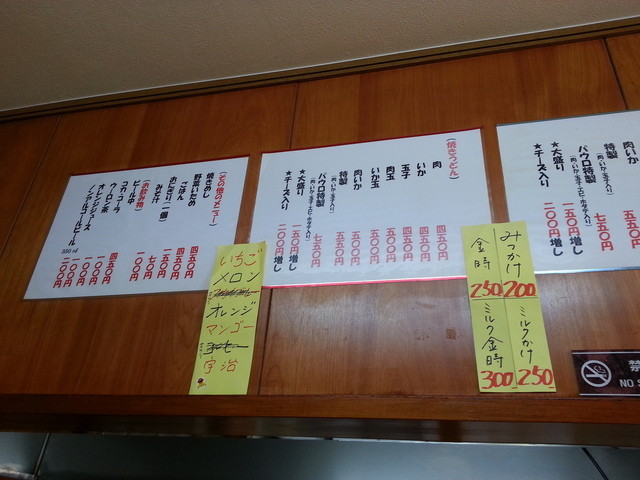 (その他のメニュー)
焼きめし 四五〇円
野菜いため 四五〇円
ごはん 一五〇円
おにぎり(一個) 一〇〇円
みそ汁 七〇円
(お飲み物)
ビール中 四五〇円
コカ・コーラ 一〇〇円
ウーロン茶 一〇〇円
オレンジジュース 一〇〇円
ノンアルコールビール 350ml 二〇〇円
(焼きうどん)
肉 四五〇円
いか 四五〇円
玉子 四五〇円
肉玉 五五〇円
いか玉 五五〇円
肉いか 五五〇円
特製
(肉・いか・玉子入り) 五五〇円
パウロ特製
七五〇円
★大盛り 一五〇円増し
★チーズ入り 二〇〇円増し
特製
肉いか 五五〇円
パウロ特製
七五〇円
★大盛り 一五〇円増し
★チーズ入り 二〇〇円増し
いちご
メロン
オレンジ
マンゴー
宇治
みつかけ 200
金時 250
ミルクかけ 250
ミルク金時 300
禁
NO S